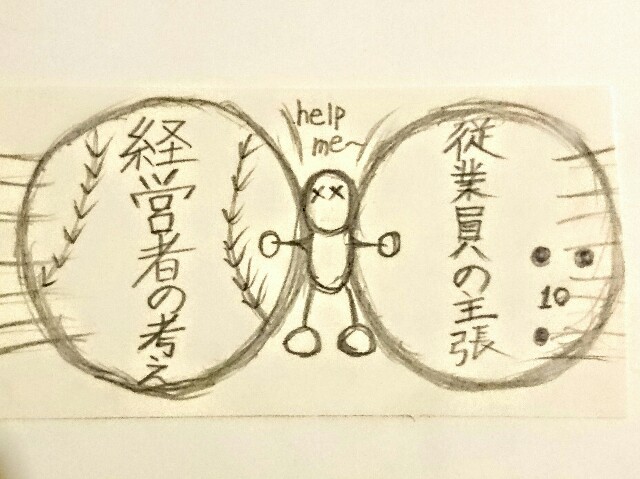 経営者の考え
help
me~
××
従業員の主張
10